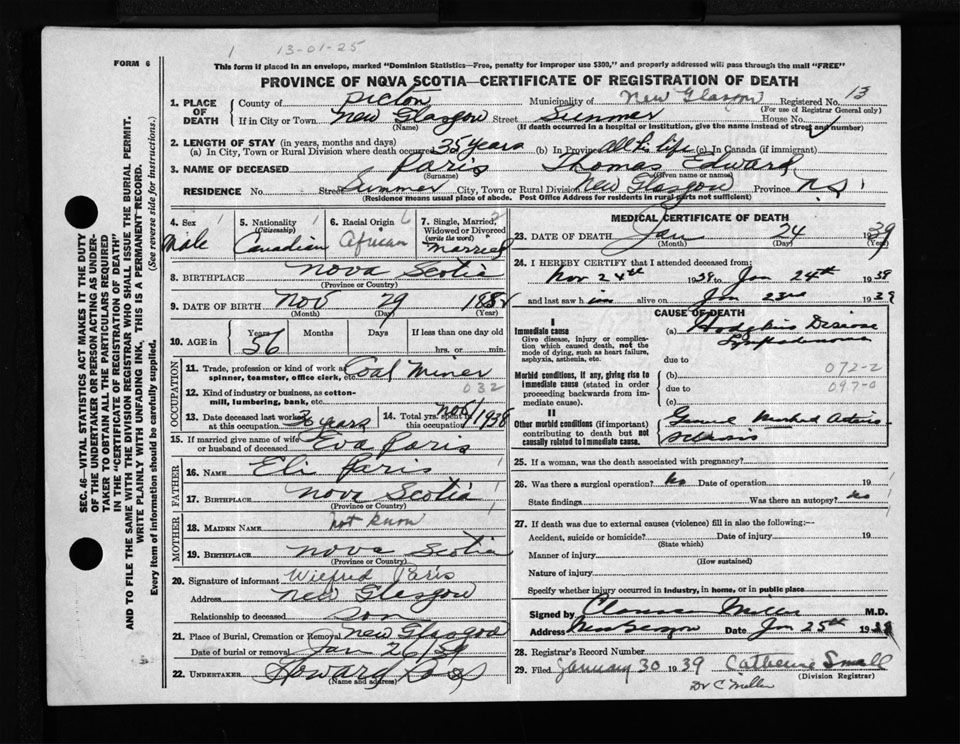 1 13-01-25
FORM 6
This form if placed in an envelope, marked "Dominion Statistics—Free, penalty for improper use $300," and properly addressed will pass through the mail "FREE"
PROVINCE OF NOVA SCOTIA—CERTIFICATE OF REGISTRATION OF DEATH
1. PLACE OF DEATH County of Pictou Municipality of New Glasgow Registered No. 13
(For use of Registrar General only)
If in City or Town New Glasgow Street Summer House No.
(Name) (If death occurred in a hospital or institution, give the name instead of street and number)
2. LENGTH OF STAY (in years, months and days)
(a) In City, Town or Rural Division where death occurred 35 years (b) In Province all his life (c) In Canada (if immigrant)
3. NAME OF DECEASED Paris Thomas Edward
(Surname) (Given name or names)
RESIDENCE No. Street Summer City, Town or Rural Division New Glasgow Province N.S.
(Residence means usual place of abode. Post Office Address for residents in rural parts not sufficient)
4. Sex Male
5. Nationality (Citizenship) Canadian
6. Racial Origin African
7. Single, Married, Widowed or Divorced (write the word) Married
8. BIRTHPLACE Nova Scotia
(Province or Country)
9. DATE OF BIRTH Nov 29 1882
(Month) (Day) (Year)
10. AGE in Years Months Days If less than one day old
56 hrs. or min.
OCCUPATION
11. Trade, profession or kind of work as spinner, teamster, office clerk, etc. Coal Miner
032
12. Kind of industry or business, as cotton-mill, lumbering, bank, etc.
13. Date deceased last worked at this occupation 14. Total yrs. spent
Nov 1938
36 years
15. If married give name of wife or husband of deceased Eva Paris
FATHER
16. NAME Eli Paris
17. BIRTHPLACE Nova Scotia
(Province or Country)
MOTHER
18. MAIDEN NAME not know
19. BIRTHPLACE Nova Scotia
(Province or Country)
20. Signature of informant Wilfred Paris
Address New Glasgow
Relationship to deceased Son
21. Place of Burial, Cremation or Removal New Glasgow
Date of burial or removal Jan 26/39
22. UNDERTAKER Howard
(Name and address)
MEDICAL CERTIFICATE OF DEATH
23. DATE OF DEATH Jan 24 1939
(Month) (Day) (Year)
24. I HEREBY CERTIFY that I attended deceased from:
Nov 24th 1938 to Jan 24th 1939
and last saw him alive on Jan 23rd 1939
CAUSE OF DEATH
I
Immediate cause (a) Hodgkins Disease
Give disease, injury or complication which caused death, not the mode of dying, such as heart failure, asphyxia, asthenia, etc.
due to
072-2
Morbid conditions, if any, giving rise to immediate cause (stated in order proceeding backwards from immediate cause). (b)
due to 097-0
(c)
II
Other morbid conditions (if important) contributing to death but not causally related to immediate cause. General marked
25. If a woman, was the death associated with pregnancy?
26. Was there a surgical operation? No Date of operation 19
State findings Was there an autopsy? No
27. If death was due to external causes (violence) fill in also the following:—
Accident, suicide or homicide? Date of injury 19
(State which)
Manner of injury
(How sustained)
Nature of injury
Specify whether injury occurred in Industry, in home, or in public place
Signed by Clarence Miller M.D.
Address New Glasgow Date Jan 25th 1939
28. Registrar's Record Number
29. Filed January 30 1939 Catherine Small
(Division Registrar)
Dr C Miller
SEC. 46—VITAL STATISTICS ACT MAKES IT THE DUTY
OF THE UNDERTAKER OR PERSON ACTING AS UNDER-
TAKER TO OBTAIN ALL THE PARTICULARS REQUIRED
IN THE "CERTIFICATE OF REGISTRATION OF DEATH"
AND TO FILE THE SAME WITH THE DIVISION REGISTRAR WHO SHALL ISSUE THE BURIAL PERMIT.
WRITE PLAINLY WITH UNFADING INK. THIS IS A PERMANENT RECORD.
Every item of information should be carefully supplied. (See reverse side for instructions.)